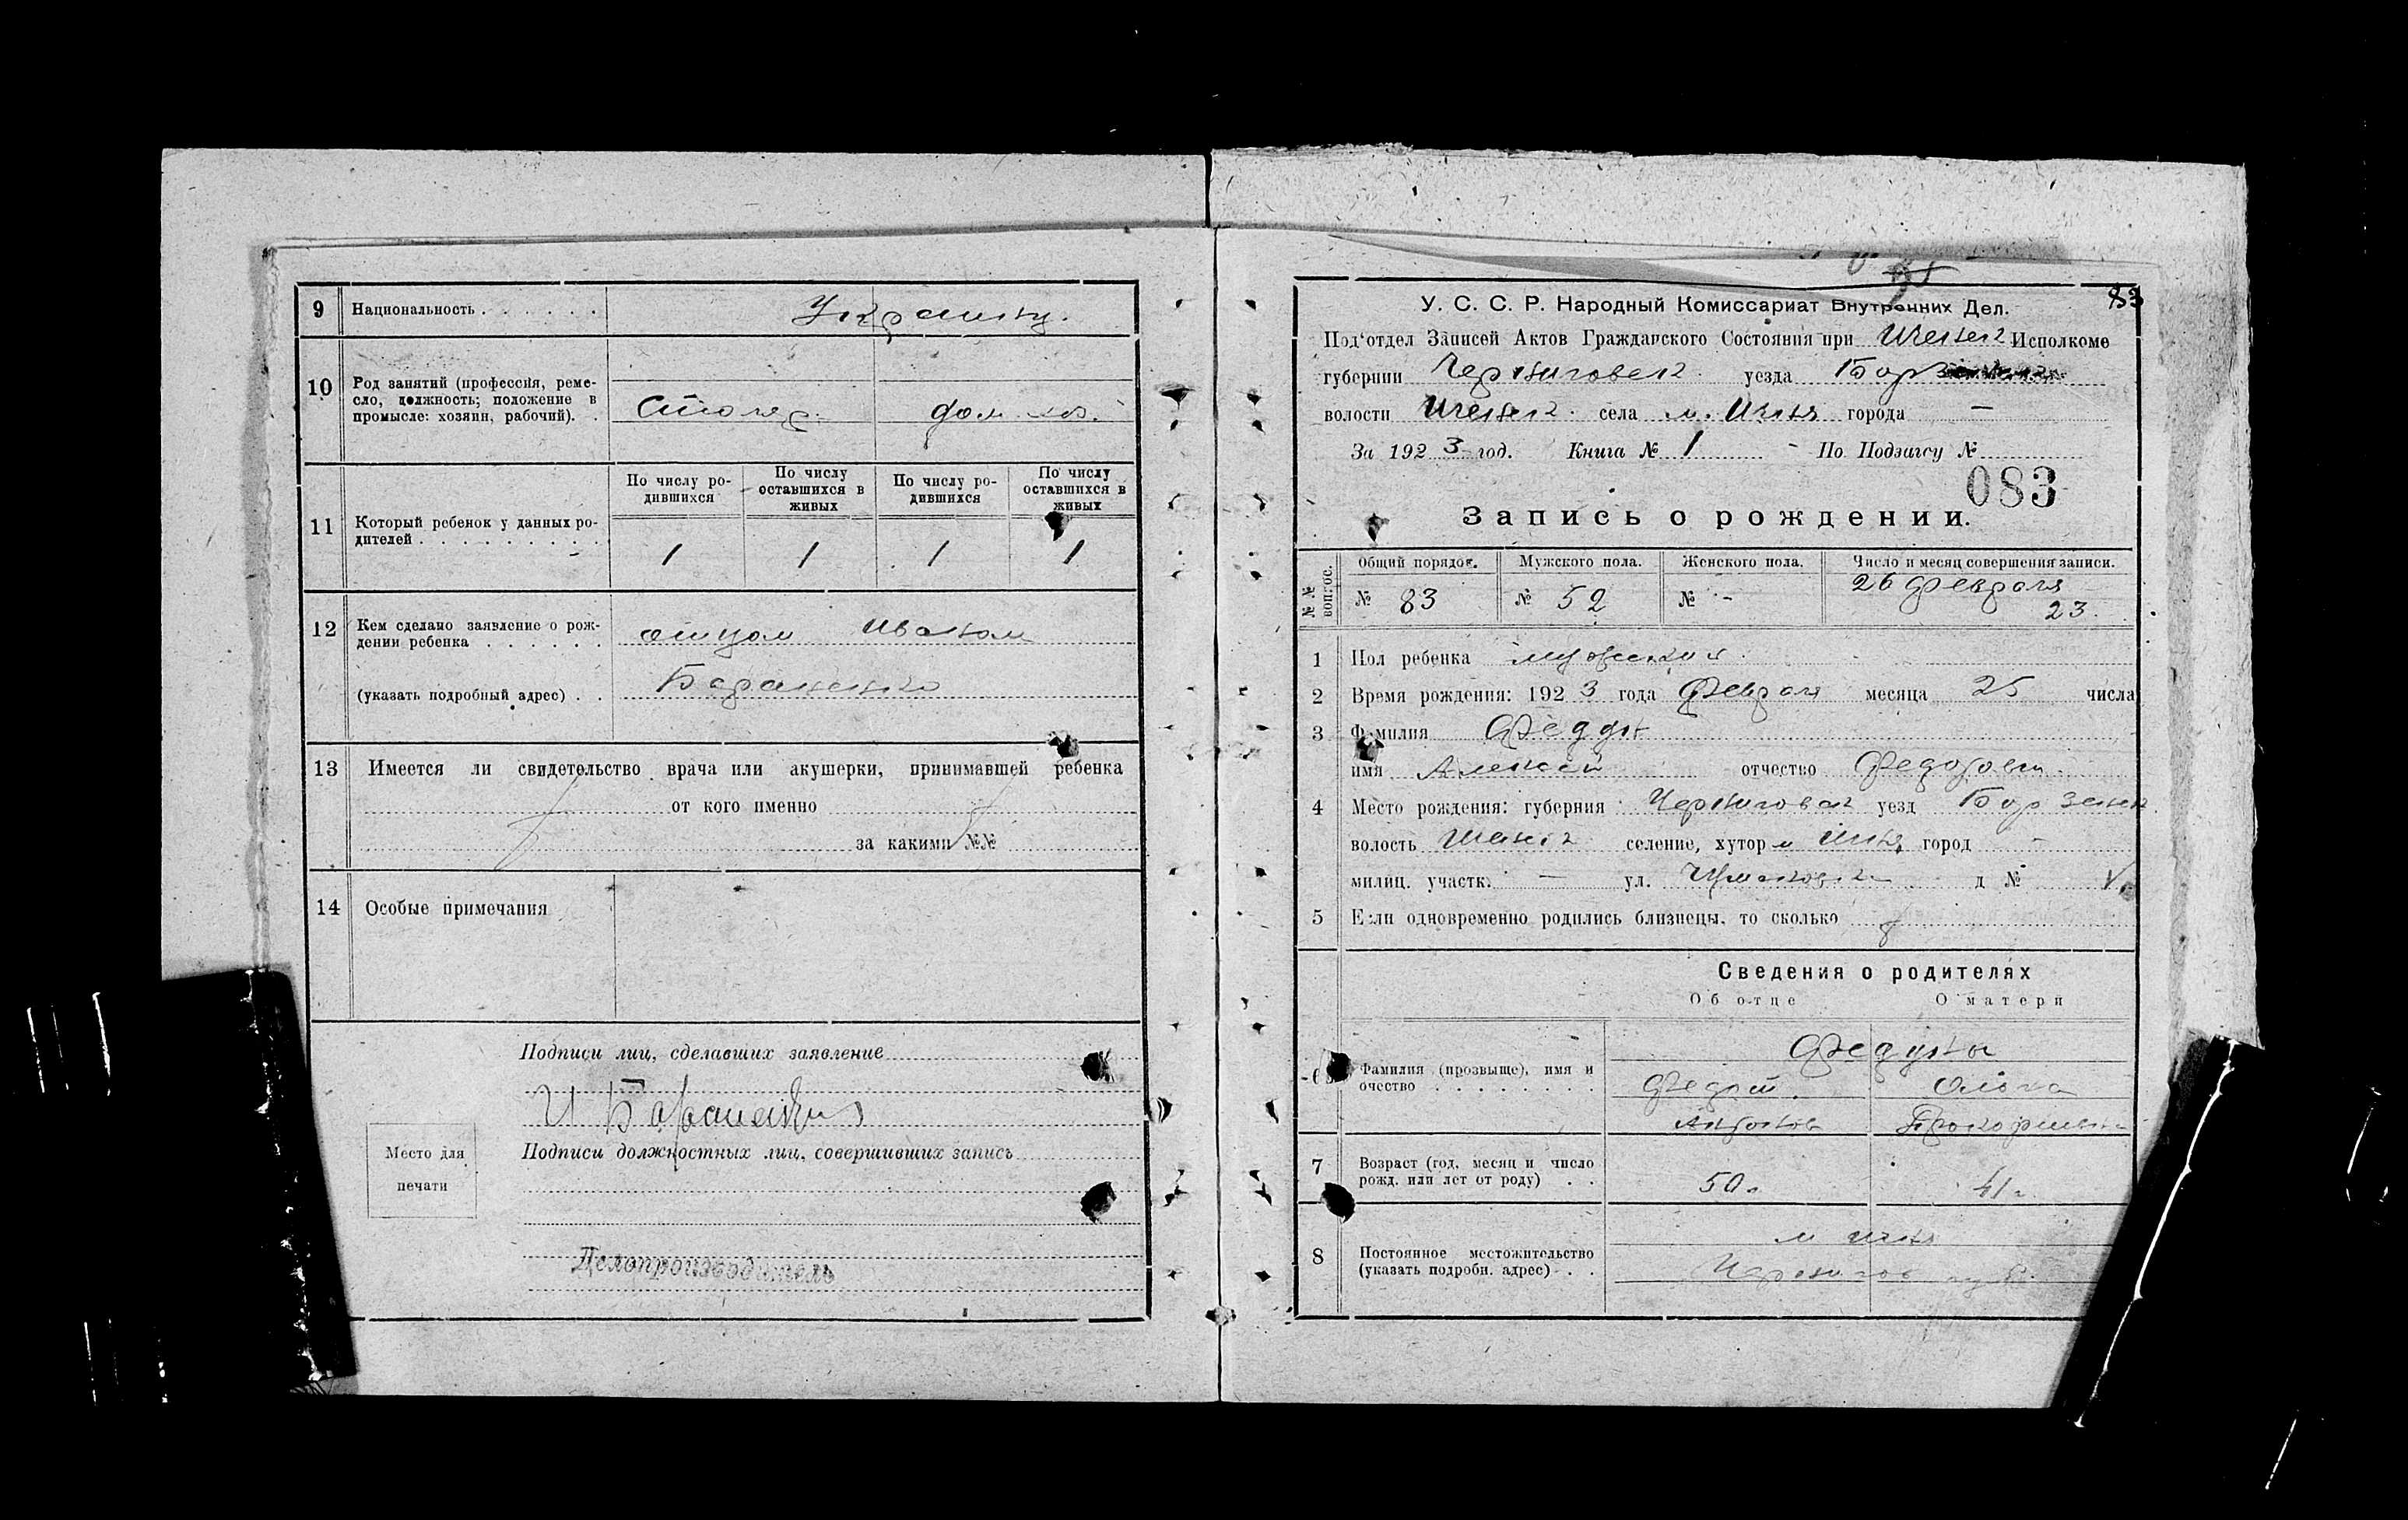 9 Национальность . . . . . . Украинцы.
10 Род занятий (профессия, реме-
сло, должность; положение в
промысле: хозяин, рабочий). .
Столяр. дом. хоз.
По числу ро-
дившихся
По числу
оставшихся в
живых
По числу ро-
дившихся
По числу
оставшихся в
живых
11 Который ребенок у данных ро-
дителей . . . . . . . . . .
1 1 1 1
12 Кем сделано заявление о рож-
дении ребенка . . . . . .
отцом Иваном
(указать подробный адрес) . .
Бараненко
13 Имеется ли свидетельство врача или акушерки, принимавшей ребенка
от кого именно
за какими №№
14 Особые примечания
Подписи лиц, сделавших заявление
И Бараненко
Подписи должностных лиц, совершивших запись
Место для
печати
Делопроизводитель
83
У. С. С. Р. Народный Комиссариат Внутренних Дел.
Под'отдел Записей Актов Гражданского Состояния при Исполкоме
губернии Черниговск. уезда Борз
волости села м. Ичня города —
За 1923 год. Книга № 1 По Подзагсу №
083
Запись о рождении.
№№ вопрос.
Общий порядок. Мужского пола. Женского пола. Число и месяц совершения записи.
№ 83 № 52 № - 26 февраля
23.
1 Пол ребенка мужской
2 Время рождения: 1923 года Февраля месяца 25 числа
3 Фамилия Федун
имя Алексей отчество Федотов
4 Место рождения: губерния Черниговск уезд Борзенск
волость селение, хутор м Ичня город -
милиц. участк. — ул. д №
5 Если одновременно родились близнецы, то сколько
Сведения о родителях
Об отце О матери
Федуны
6 Фамилия (прозвыще), имя и
очество . . . . . . . .
Федот Ольга
Прокофиевна
7 Возраст (год, месяц и число
рожд. или лет от роду) . .
50 л 41 г
8 Постоянное местожительство
(указать подробн. адрес) . .
м Ичня
Чернигов губ.